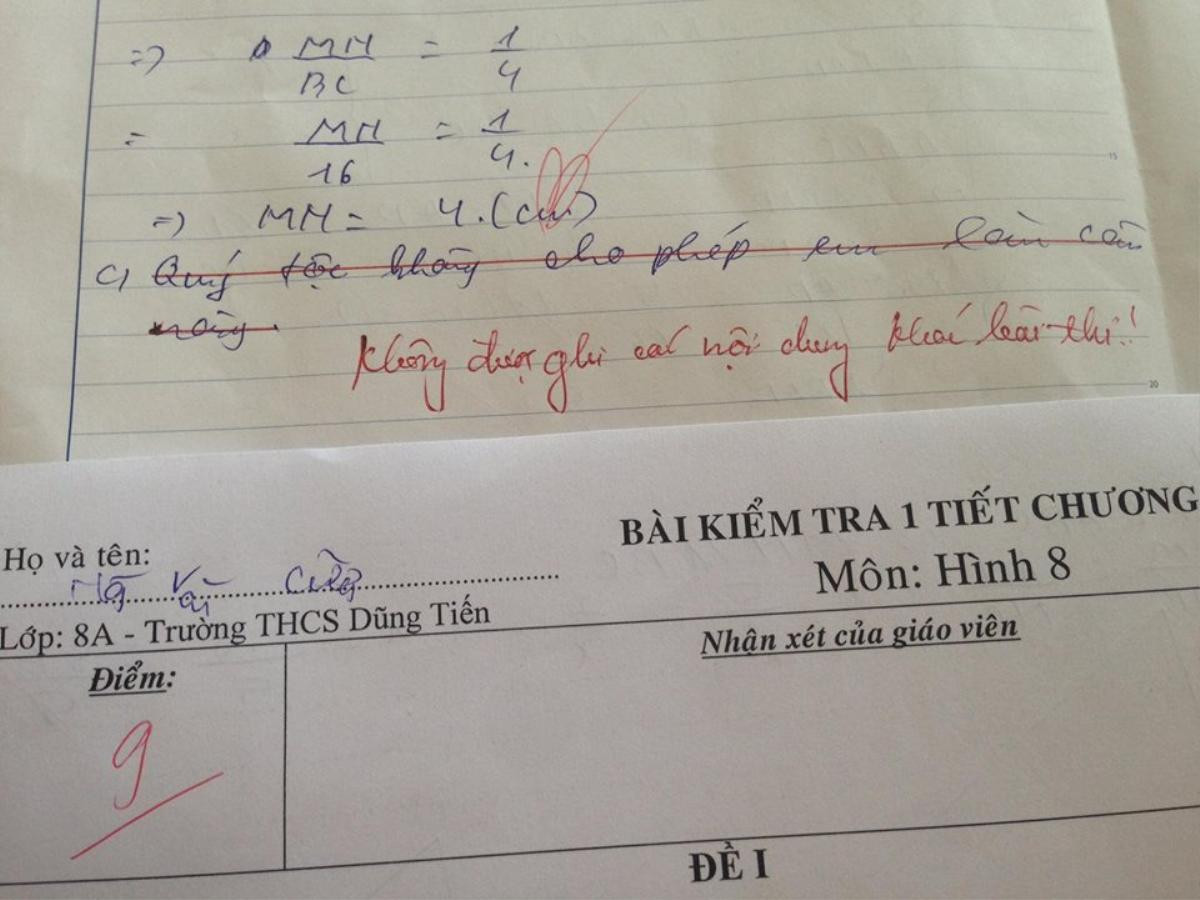 => MN/BC = 1/4
= MN/16 = 1/4.
=> MN = 4.(cm)
c) Quý tộc không cho phép em làm câu
này.
Không được ghi các nội dung khác bài thi!
15
20
BÀI KIỂM TRA 1 TIẾT CHƯƠNG
Môn: Hình 8
Họ và tên:
Lớp: 8A - Trường THCS Dũng Tiến
Điểm:
Nhận xét của giáo viên
9
ĐỀ I